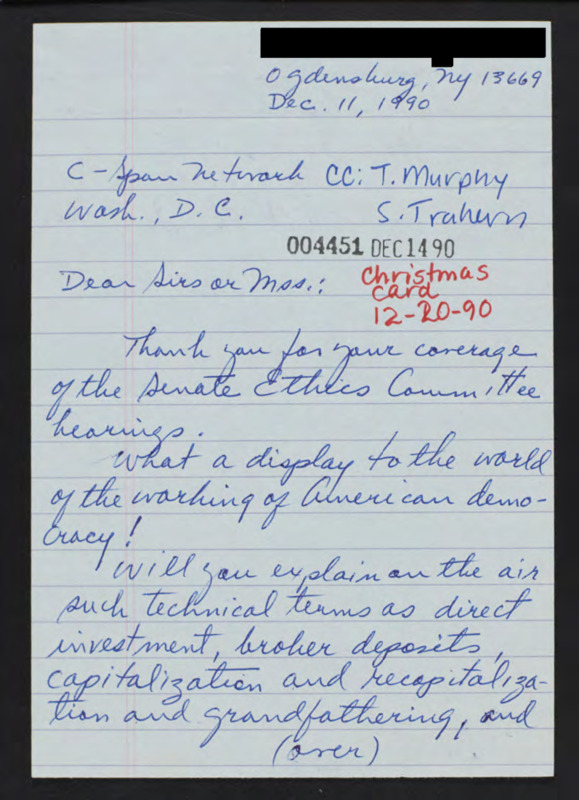 Ogdensburg, NY 13669
Dec. 11, 1990
C-Span Network CC: T. Murphy
Wash., D.C. S. Trahern
004451 DEC 14 90
Dear Sirs or Mss.: Christmas
card
12-20-90
Thank you for your coverage
of the Senate Ethics Committee
hearings.
What a display to the world
of the working of American demo-
cracy!
Will you explain on the air
such technical terms as direct
investment, broker deposits,
capitalization and recapitaliza-
tion and grandfathering, and
(over)